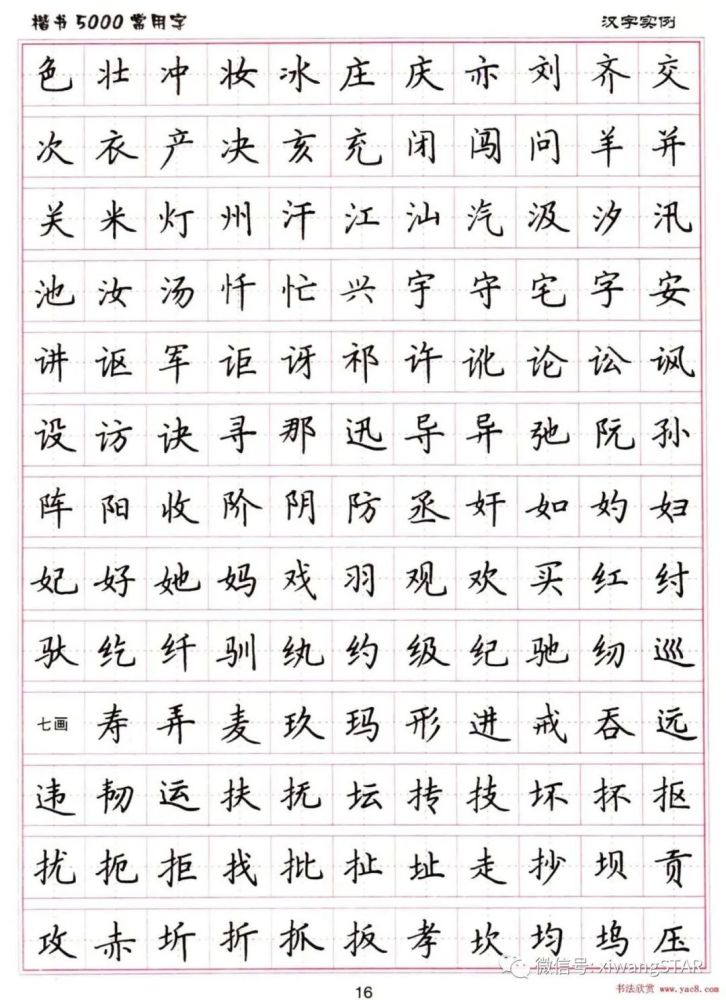 楷书5000常用字 汉字实例
色 壮 冲 妆 冰 庄 庆 亦 刘 齐 交
次 衣 产 决 亥 充 闭 闯 问 羊 并
关 米 灯 州 汗 江 汕 汽 汲 汐 汛
池 汝 汤 忏 忙 兴 宇 守 宅 字 安
讲 讴 军 讵 讶 祁 许 讹 论 讼 讽
设 访 诀 寻 那 迅 导 异 弛 阮 孙
阵 阳 收 阶 阴 防 丞 奸 如 妁 妇
妃 好 她 妈 戏 羽 观 欢 买 红 纣
驮 纥 纤 驯 纨 约 级 纪 驰 纫 巡
七画 寿 弄 麦 玖 玛 形 进 戒 吞 远
违 韧 运 扶 抚 坛 抟 技 坏 抔 抠
扰 扼 拒 找 批 扯 址 走 抄 坝 贡
攻 赤 圻 折 抓 扳 孝 坎 均 坞 压
微信号: xiwangSTAR
16
书法欣赏 www.yac8.com